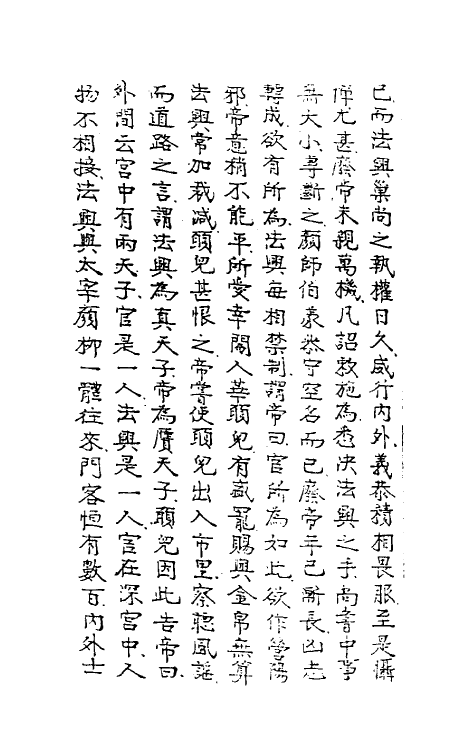 已而法興巢尚之執權日久威行内外義恭積相畏服至是懾
憚尤甚廢帝未親萬機凡詔敕施為悉決法興之手尚書中事
無大小專斷之顏師伯義恭守空名而已廢帝年已漸長凶志
轉成欲有所為法興每相禁制謂帝曰官所為如此欲作營陽
邪帝意稍不能平所愛幸閹人華願兒有盛寵賜與金帛無算
法興常加裁減願兒甚恨之帝嘗使願兒出入市里察聽風謠
而道路之言謂法興為真天子帝為贋天子願兒因此告帝曰
外間云宮中有兩天子官是一人法興是一人官在深宮中人
物不相接法興與太宰顏柳一體往來門客恒有數百内外士